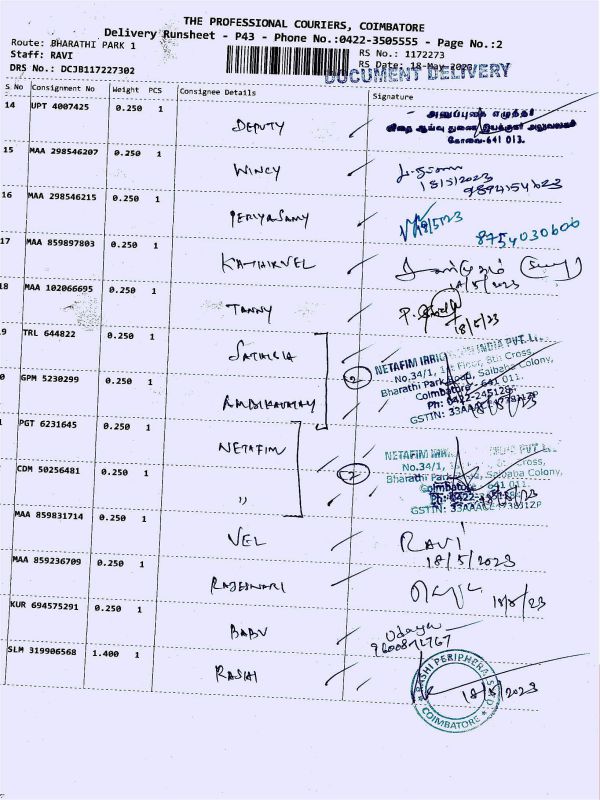 THE PROFESSIONAL COURIERS, COIMBATORE
Delivery Runsheet - P43 - Phone No.:0422-3505555 - Page No.:2
Route: BHARATHI PARK 1
RS No.: 1172273
Staff: RAVI
RS Date: 18-May-2023
DRS No.: DCJB117227302
DOCUMENT DELIVERY
S No Consignment No Weight PCS Consignee Details Signature
14 UPT 4007425 0.250 1 DEPUTY
கோவை-641 013.
15 MAA 298546207 0.250 1 WINCY
18/5/2023
16 MAA 298546215 0.250 1 PERIYASAMY
18/5/23
8754030600
17 MAA 859897803 0.250 1 KATHIRVEL
18/5/2023
18 MAA 102066695 0.250 1 TANNY
18/5/23
9 TRL 644822 0.250 1
NETAFIM INDIA PVT.
No.34/1, 1st Floor, 5th Cross,
Bharathi Park Road, Saibaba Colony,
Coimbatore - 641 011.
0 GPM 5230299 0.250 1
1 PGT 6231645 0.250 1 NETAFIM
NETAFIM INDIA PVT.
No.34/1, Cross,
Saibaba Colony,
Coimbatore - 641 011.
CDM 50256481 0.250 1 "
MAA 859831714 0.250 1 VEL
RAVI
18/5/2023
MAA 859236709 0.250 1 RAJESWARI
KUR 694575291 0.250 1 BABU
Udaya
SLM 319906568 1.400 1 RASHI
RASHI PERIPHERALS
COIMBATORE
18/5/2023